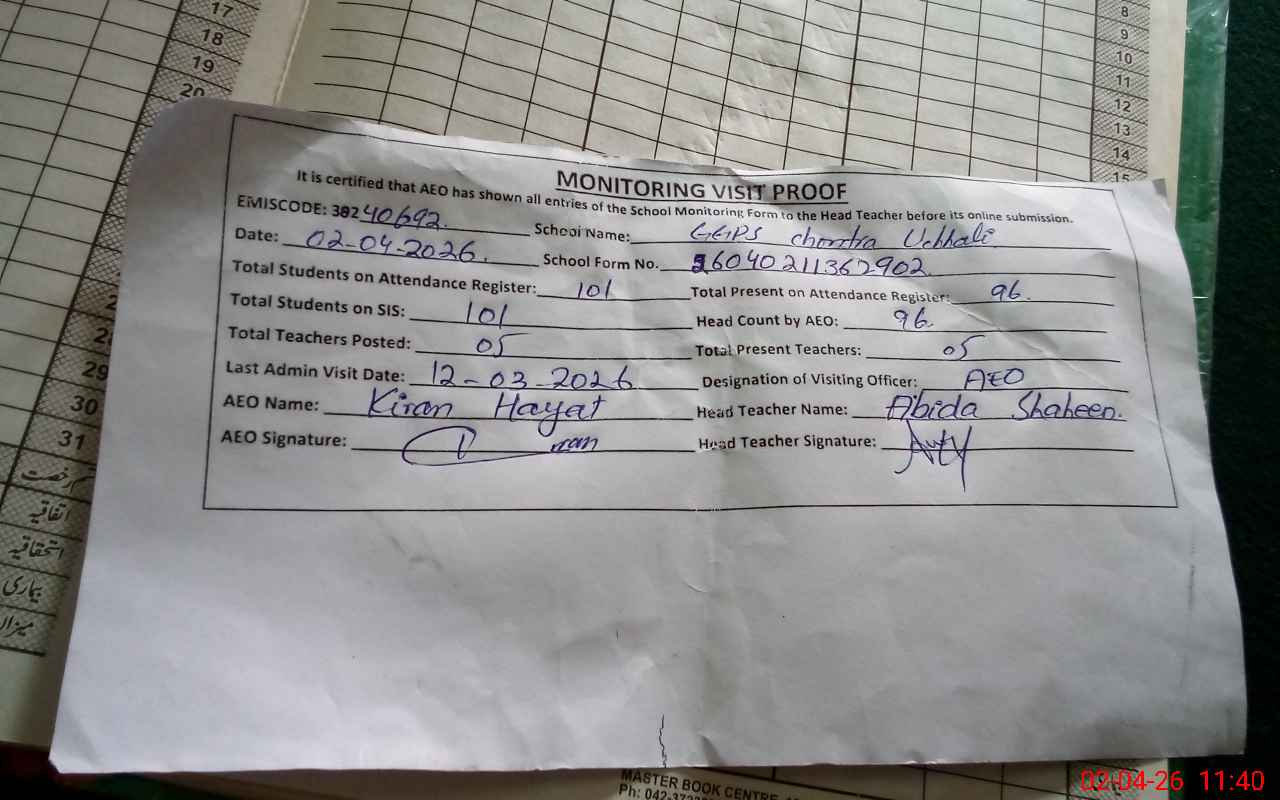 17
18
19
20
8
9
10
11
12
13
14
15
MONITORING VISIT PROOF
It is certified that AEO has shown all entries of the School Monitoring Form to the Head Teacher before its online submission.
EMISCODE: 38240692. School Name: GGPS Chontra Uchhali
Date: 02-04-2026. School Form No. 26040211362902
Total Students on Attendance Register: 101 Total Present on Attendance Register: 96.
Total Students on SIS: 101 Head Count by AEO: 96.
Total Teachers Posted: 05 Total Present Teachers: 05
Last Admin Visit Date: 12-03-2026 Designation of Visiting Officer: AEO
AEO Name: Kiran Hayat Head Teacher Name: Abida Shaheen.
AEO Signature: Head Teacher Signature:
29
30
31
اتفاقیہ
استحقاقیہ
بیماری
میزان
MASTER BOOK CENTRE
Ph: 042-3723
02-04-26 11:40